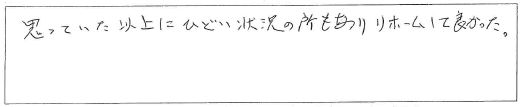 思っていた以上にひどい状況の所もあり リホームして良かった。